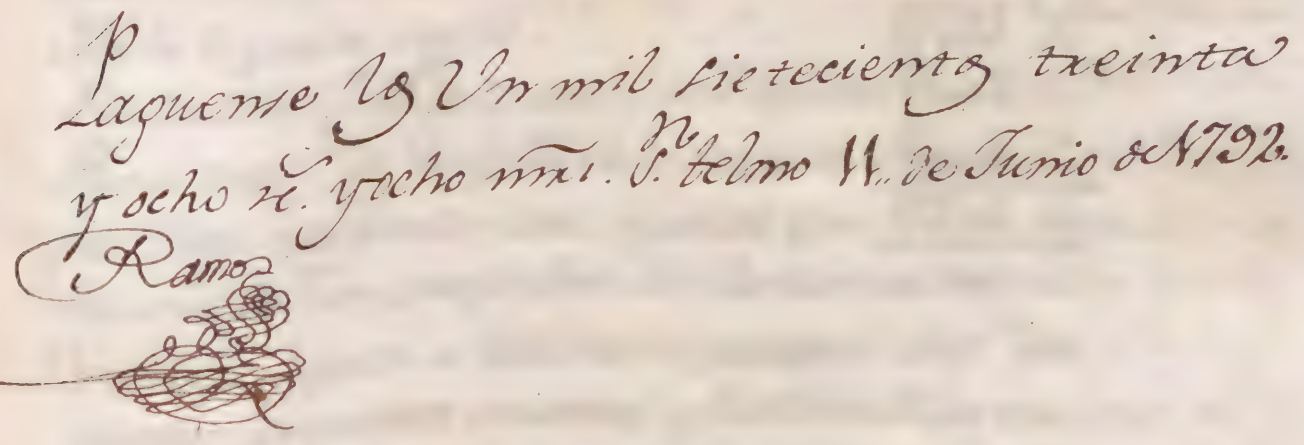 Paguense los Un mil sietecientos treinta
y ocho rs. y ocho mrs. Sn. telmo 11. de Junio de 1792.
Ramos